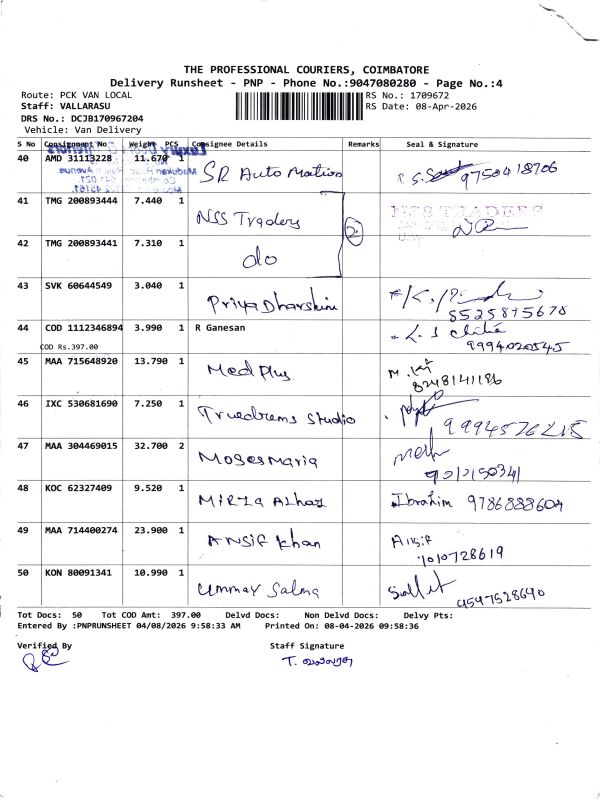 THE PROFESSIONAL COURIERS, COIMBATORE
Delivery Runsheet - PNP - Phone No.:9047080280 - Page No.:4
Route: PCK VAN LOCAL
RS No.: 1709672
Staff: VALLARASU
RS Date: 08-Apr-2026
DRS No.: DCJB170967204
Vehicle: Van Delivery
S No Consignment No Weight PCS Consignee Details Remarks Seal & Signature
40 AMD 31113228 11.670 1 SR Auto Mation 9750418706
41 TMG 200893444 7.440 1 NSS Traders 2 NSS TRADERS
42 TMG 200893441 7.310 1 do
43 SVK 60644549 3.040 1 Priya Dharshini 8525875678
44 COD 1112346894 3.990 1 R Ganesan
COD Rs.397.00 9994020545
45 MAA 715648920 13.790 1 Med Plus 8248141186
46 IXC 530681690 7.250 1 Studio
47 MAA 304469015 32.700 2 Moses Maria
48 KOC 62327409 9.520 1 Mirza Ibrahim 9786888604
49 MAA 714400274 23.900 1 Ansif Khan Ansif
50 KON 80091341 10.990 1 Ummay Salma
Tot Docs: 50 Tot COD Amt: 397.00 Delvd Docs: Non Delvd Docs: Delvy Pts:
Entered By :PNPRUNSHEET 04/08/2026 9:58:33 AM Printed On: 08-04-2026 09:58:36
Verified By Staff Signature